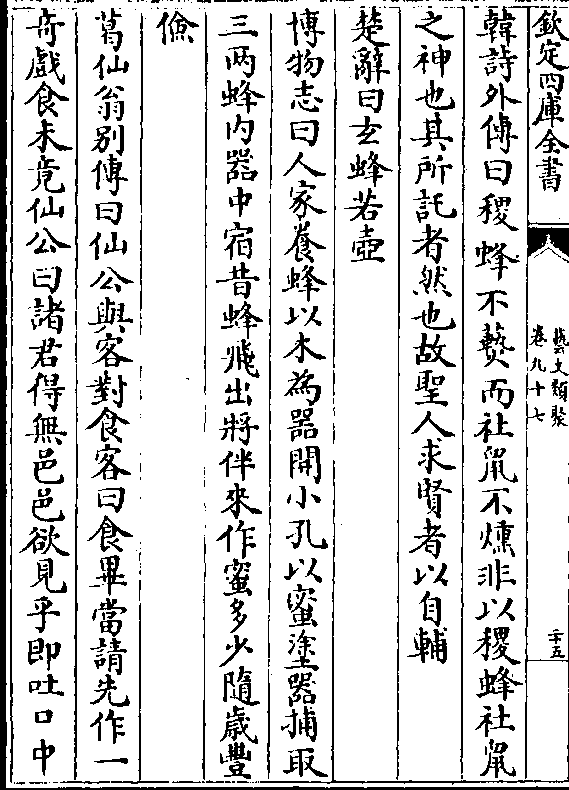 欽定四庫全書
藝文類聚
卷九十七
二十五
韓詩外傳曰稷蜂不爇而社䑕不燻非以稷蜂社䑕
之神也其所託者然也故聖人求賢者以自輔
楚辭曰玄蜂若壺
博物志曰人家養蜂以木為器開小孔以蜜塗器捕取
三兩蜂内器中宿昔蜂飛出將伴來作蜜多少隨歲豐
儉
葛仙翁别傳曰仙公與客對食客曰食畢當請先作一
奇戲食未竟仙公曰諸君得無邑邑欲見乎即吐口中